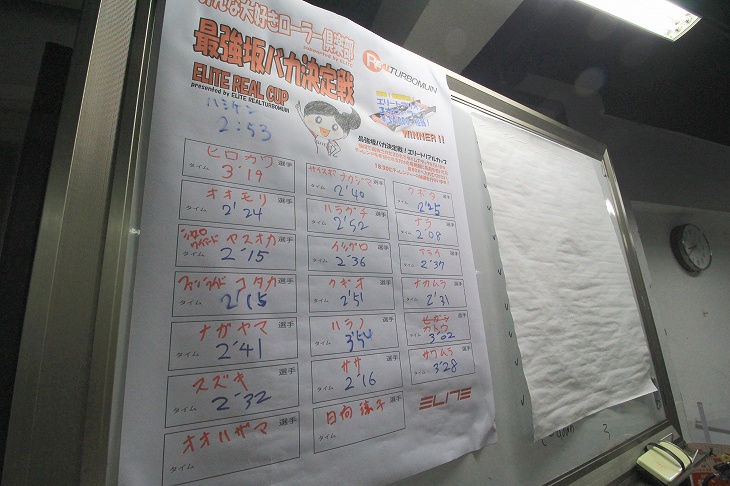 みんな大好きローラー倶楽部
最強坂バカ決定戦
ELITE REAL CUP
presented by ELITE REALTURBOMUIN
REALTURBOMUIN
WINNER!!
最強坂バカ決定戦！エリートリアルカップ
ハシケン
2:53
ヒロカワ 選手
タイム 3'19
オオモリ 選手
タイム 2'24
ヤスオカ 選手
タイム 2'15
コタカ 選手
タイム 2'15
ナガヤマ 選手
タイム 2'41
スズキ 選手
タイム 2'32
オオハザマ 選手
タイム
ナカジマ 選手
タイム 2'40
ハラグチ 選手
タイム 2'52
イシグロ 選手
タイム 2'36
クギオ 選手
タイム 2'51
ハラノ 選手
タイム 3'54
ササ 選手
タイム 2'16
日向涼子 選手
タイム
クボタ 選手
タイム 2'25
ナラ 選手
タイム 2'08
選手
タイム 2'37
ナカムラ 選手
タイム 2'31
カトウ 選手
タイム 3'02
サワムラ 選手
タイム 3'28
ELITE